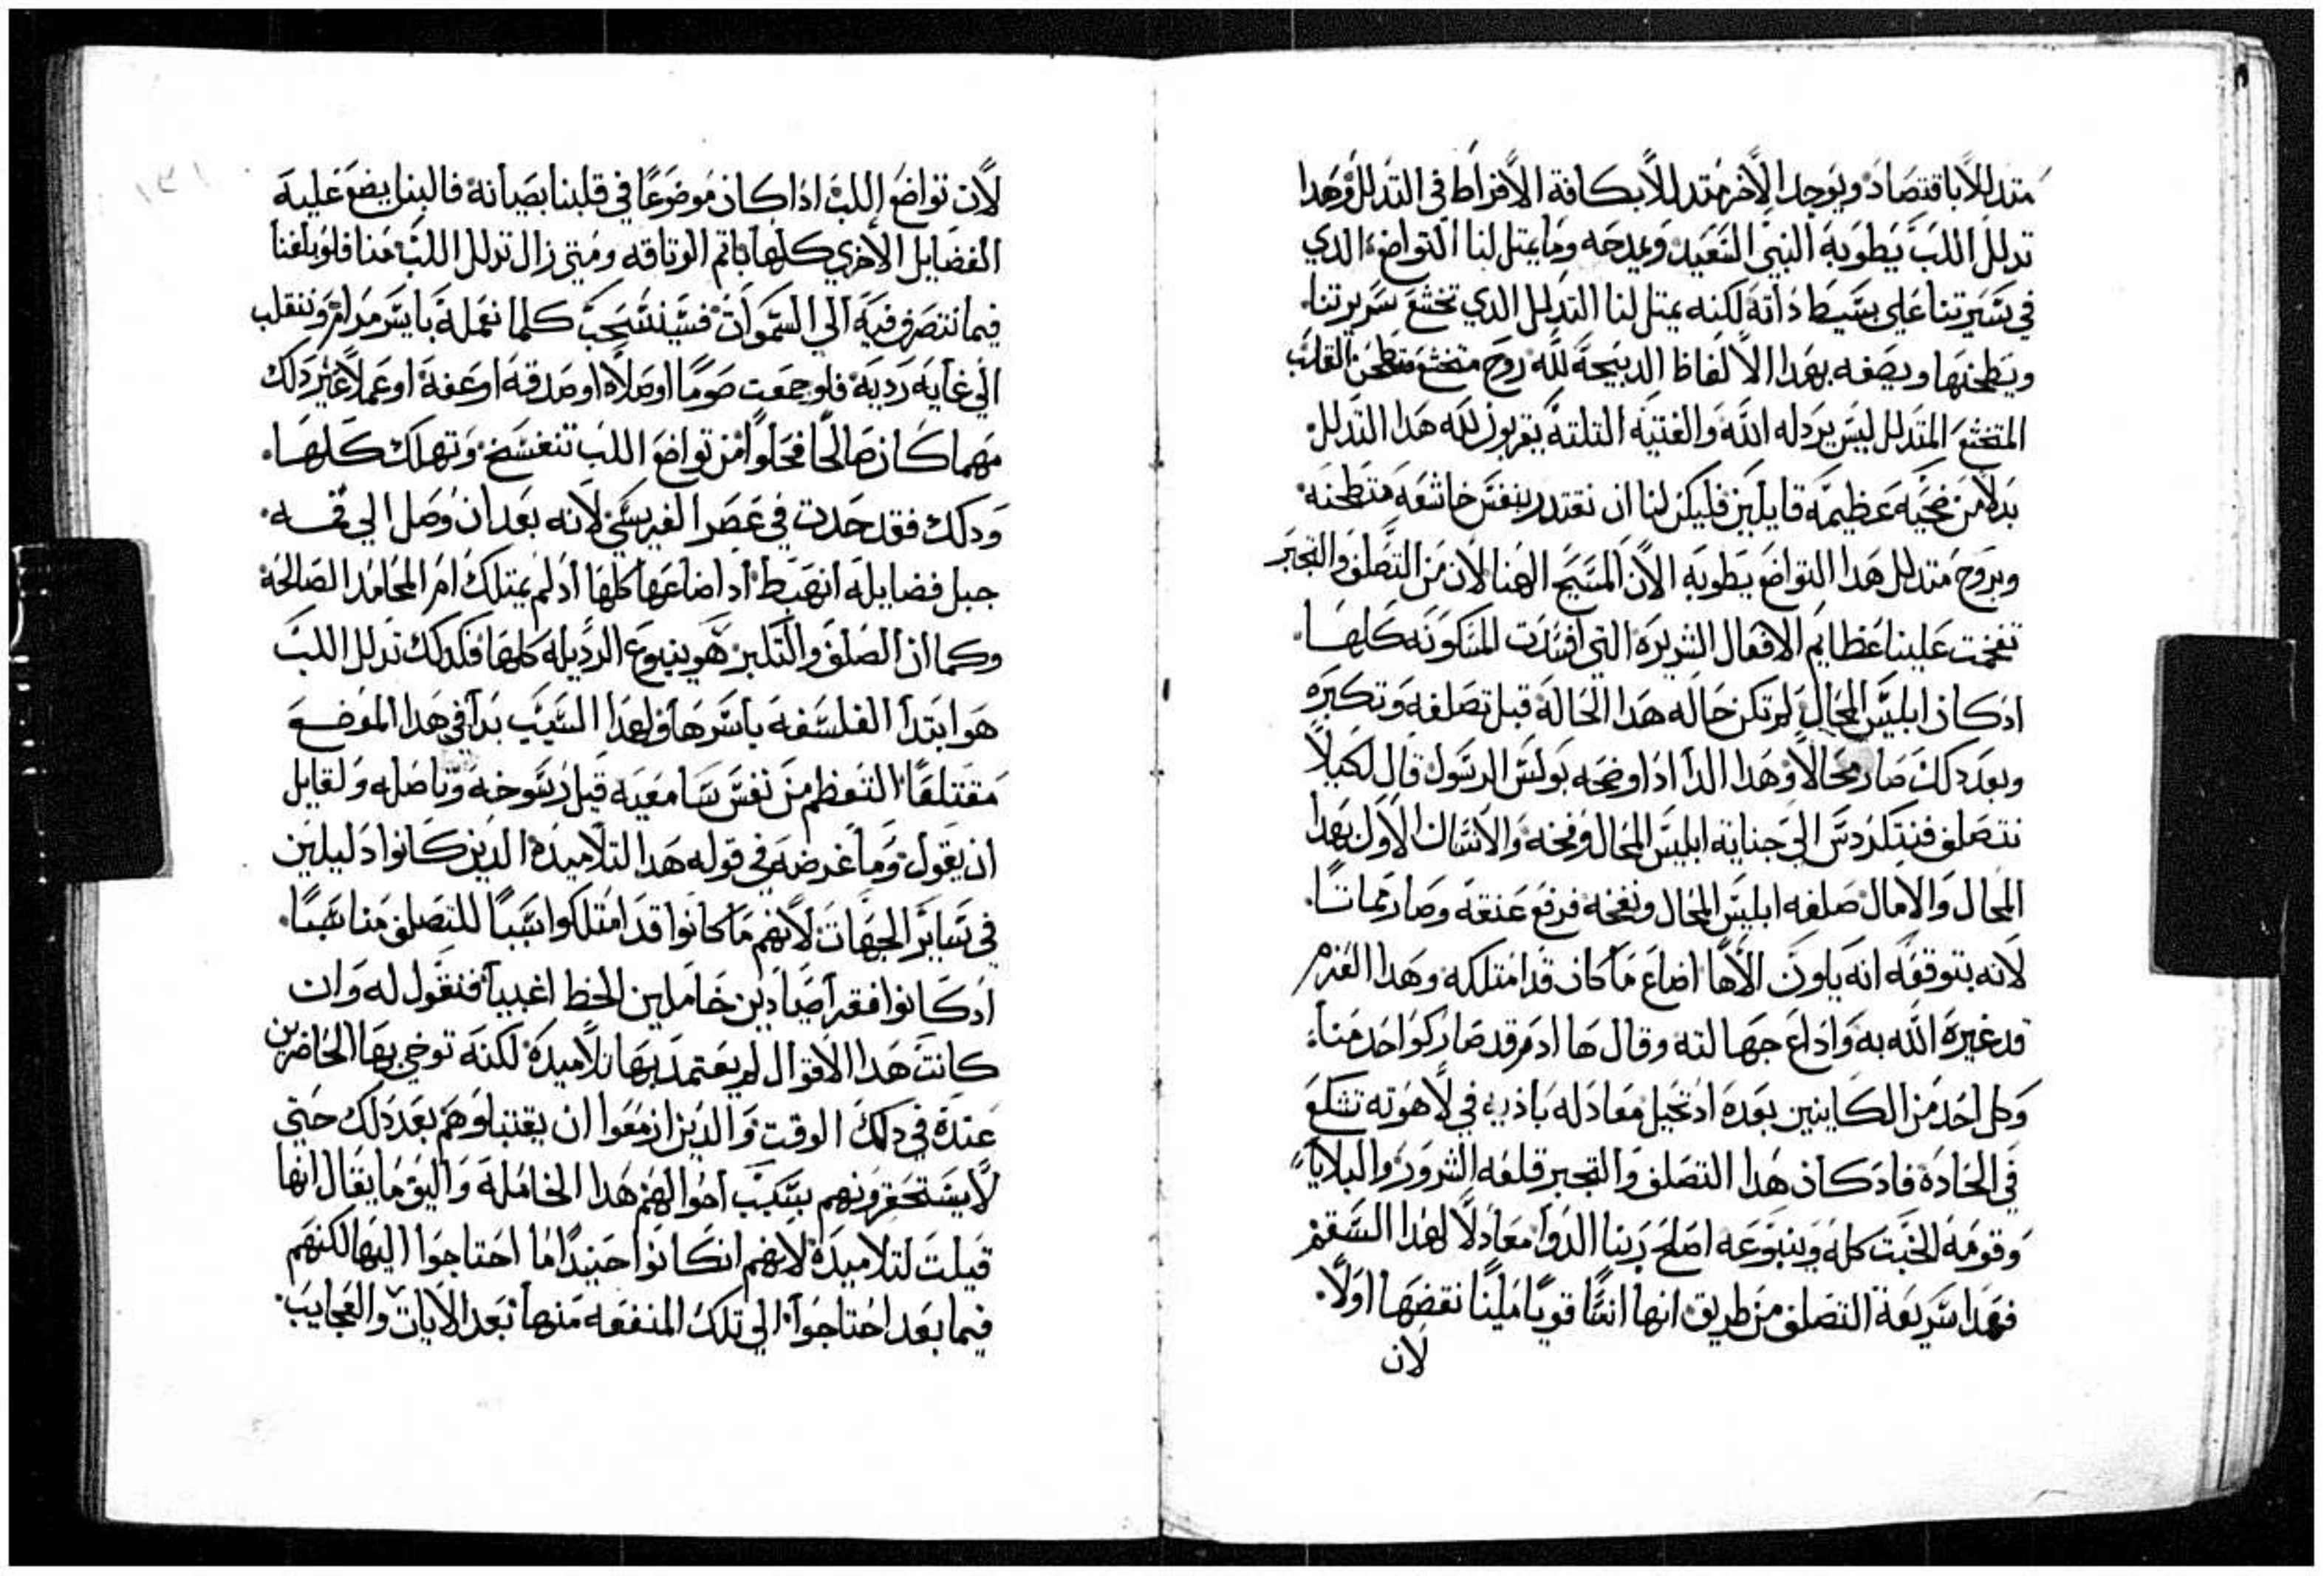 متدللاً باقتصاد ويوجد الاخر متدللاً بكافة الافراط في التدلل وهدا
تدلل اللب يطوبه النبي السعيد ويمدحه وما يمتل لنا التواضع الدي
في سيرتنا علي بسيط داته لكنه يمتل لنا التدلل الدي تخشع سريرتنا
ويطحنها ويصفه بهدا الالفاظ الدبيحة لله روح متخشع متطحن القلب
المتخشع المتدلل ليس يردله الله والفتيه التلته يقربون لله هدا التدلل
بدلاً من ضحيه عظيمه قايلين فليكن لنا ان نقتدر بنفس خاشعه متطحنه
وبروح متدلل هدا التواضع يطوبه الان المسيح الهنا لان من التصلف والتجبر
تفخمت علينا عظايم الافعال الشريره التي افسدت المسكونه كلها
ادكان ابليس المحال لم تكن حاله هدا الحالة قبل تصلفه وتكبره
وبعد دلك صار محالاً وهدا الدا ادا اوضحه بولس الرسول قال لكيلاً
نتصلف فنتكردس الي جنايه ابليس المحال وفخه والانسان الاول بهدا
المحال والامال صلفه ابليس المحال ونفخه فرفع عنقه وصار مماتاً
لانه بتوقفه انه يكون الاهاً اضاع ما كان قد امتلكه وهدا الغرم
قد غيره الله به واداع جهالته وقال ها ادم قد صار كواحد منا
وكل احد من الكاينين بعده اد تخيل معادله باريه في لاهوته تشكع
في الحاده فادكان هدا التصلف والتجبر قلعه الشرور والبلايا
وقومة الخبت كله وينبوعه اصلح ربنا الدوا معادلاً لهدا السقم
فهدا شريعة التصلف من طريق انها انشاً قوياً مليناً نقضها اولاً
لان
لان تواضع اللب ادا كان موضوعاً في قلبنا بصيانة فالبنا يضع عليه
الفضايل الاخري كلها باتم الوتاقه ومتي زال تدلل اللب منا فلو بلغنا
فيما نتصرف فيه الي السموات فسينسحب كلما نعملة بايسر مرام وننقلب
الي غايه رديه فلو جمعت صوماً او صلاه او صدقه او عفة او عملاً غير دلك
مهما كان صالحاً فخلواً من تواضع اللب تنفسخ وتهلك كلها
ودلك فقد حدت في عصر الفريسي لانه بعد ان وصل الي قمه
جبل فضايله انهبط اد اضاعها كلها اد لم يمتلك ام المحامد الصالحة
وكما ان الصلف والتكبر هو ينبوع الرديله كلها فكدلك تدلل اللب
هو ابتدا الفلسفه باسرها ولهدا السبب بدا في هدا الموضع
مقتلعاً التعظم من نفس سامعيه قبل رسوخه وتاصله ولقايل
ان يقول وما غرضه في قوله هدا التلاميدة الدين كانوا دليلين
في ساير الجهات لانهم ما كانوا قد امتلكوا سبباً للتصلف مناسباً
ادكانوا فقرا صيادين خاملين الحظ اغبيا فنقول له وان
كانت هدا الاقوال لم يعتمد بها تلاميدة لكنه توخي بها الحاضرين
عنده في دلك الوقت والدين ازمعوا ان يقتبلوهم بعد دلك حتي
لا يستحقرونهم بسبب احوالهم هدا الخامله واليق ما يقال انها
قيلت لتلاميدة لانهم ان كانوا حينيداً ما احتاجوا اليها لكنهم
فيما بعد احتاجوا الي تلك المنفعه منها بعد الايات والعجايب